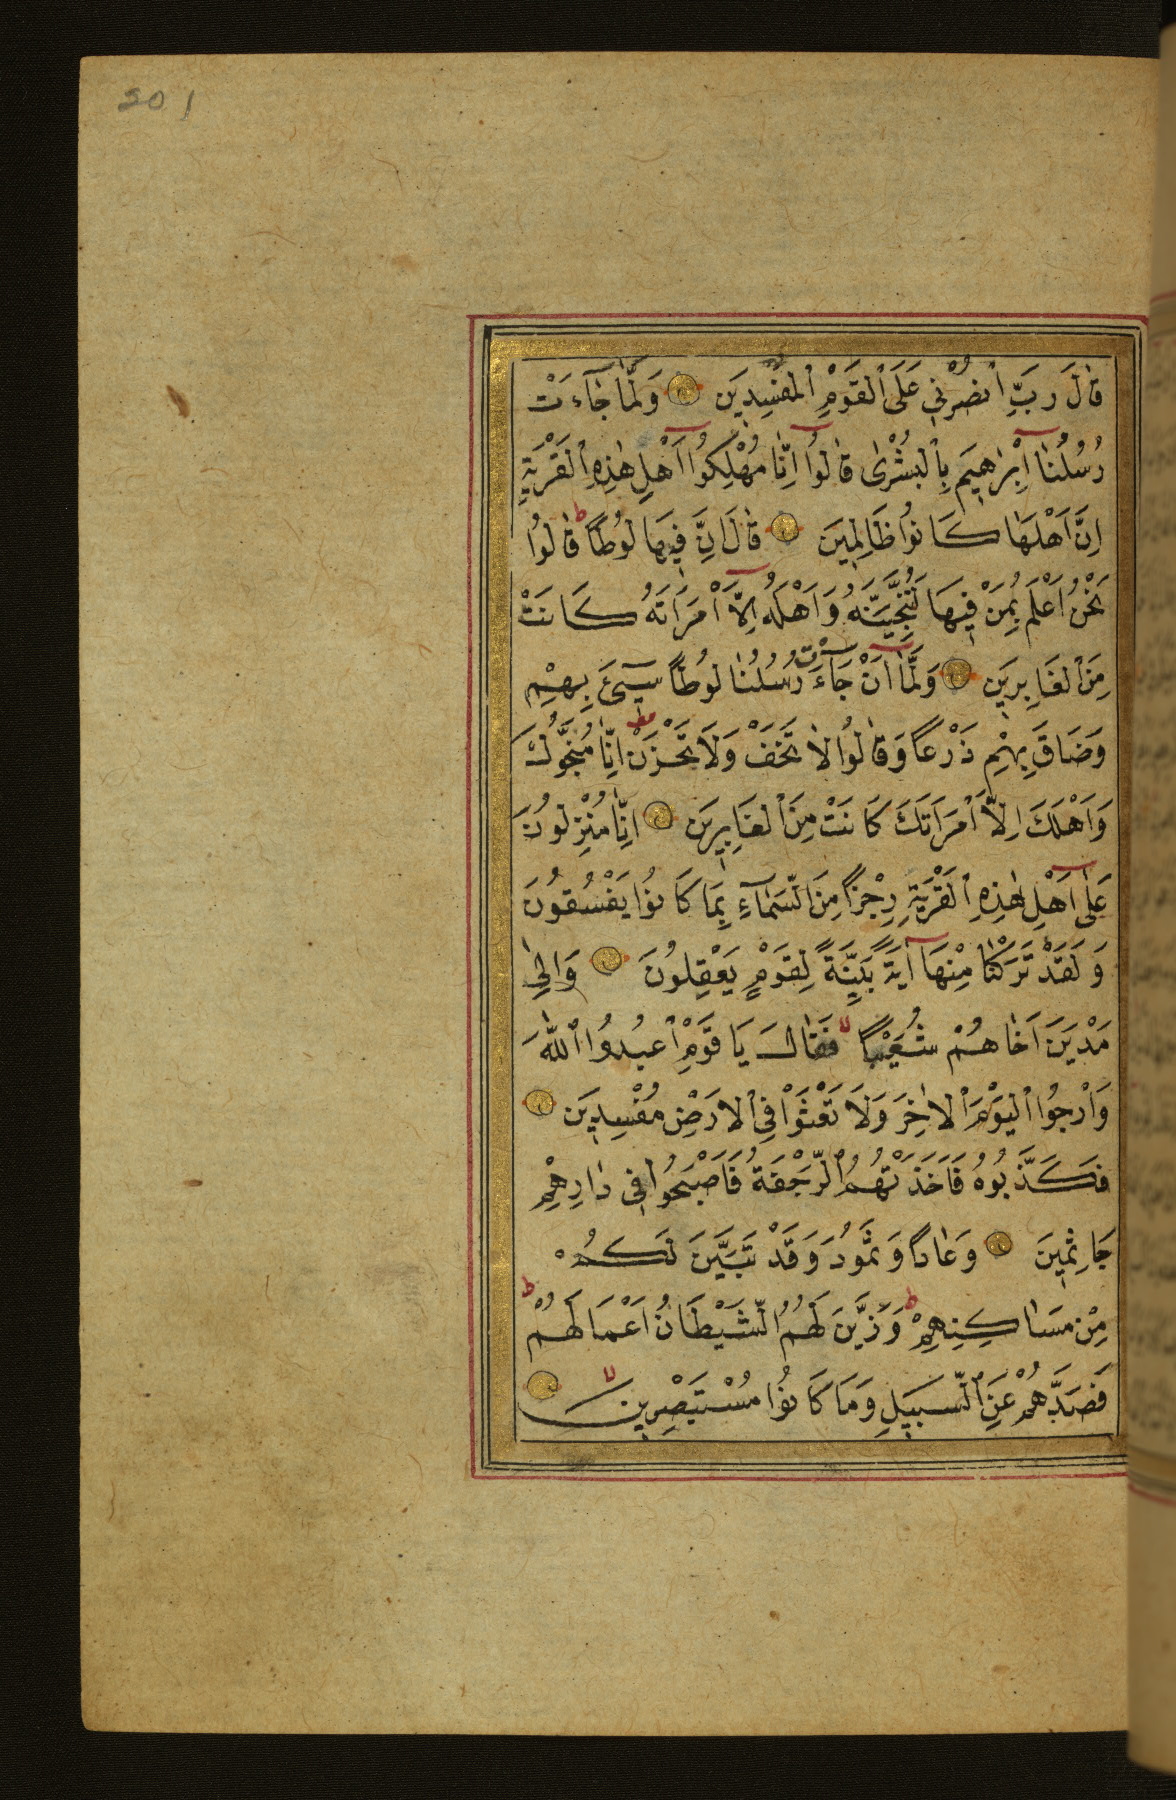 201
قَالَ رَبِّ ٱنْصُرْنِي عَلَى ٱلْقَوْمِ ٱلْمُفْسِدِينَ وَلَمَّا جَآءَتْ
رُسُلُنَا اِبْرٰهِيمَ بِٱلْبُشْرٰى قَالُوا اِنَّا مُهْلِكُوا اَهْلِ هٰذِهِ ٱلْقَرْيَةِ
اِنَّ اَهْلَهَا كَانُوا ظَالِمِينَ قَالَ اِنَّ فِيهَا لُوطًا ط قَالُوا
نَحْنُ اَعْلَمُ بِمَنْ فِيهَا لَنُنَجِّيَنَّهُ وَاَهْلَهُ اِلَّا ٱمْرَاَتَهُ كَانَتْ
مِنَ ٱلْغَابِرِينَ وَلَمَّا اَنْ جَآءَتْ رُسُلُنَا لُوطًا سِيٓئَ بِهِمْ
وَضَاقَ بِهِمْ ذَرْعًا وَقَالُوا لَا تَخَفْ وَلَا تَحْزَنْ اِنَّا مُنَجُّوكَ
وَاَهْلَكَ اِلَّا ٱمْرَاَتَكَ كَانَتْ مِنَ ٱلْغَابِرِينَ اِنَّا مُنْزِلُونَ
عَلٰى اَهْلِ هٰذِهِ ٱلْقَرْيَةِ رِجْزًا مِنَ ٱلسَّمَآءِ بِمَا كَانُوا يَفْسُقُونَ
وَلَقَدْ تَرَكْنَا مِنْهَا آيَةً بَيِّنَةً لِقَوْمٍ يَعْقِلُونَ وَاِلٰى
مَدْيَنَ اَخَاهُمْ شُعَيْبًا لا فَقَالَ يَا قَوْمِ ٱعْبُدُوا ٱللّٰهَ
وَٱرْجُوا ٱلْيَوْمَ ٱلْاٰخِرَ وَلَا تَعْثَوْا فِي ٱلْاَرْضِ مُفْسِدِينَ
فَكَذَّبُوهُ فَاَخَذَتْهُمُ ٱلرَّجْفَةُ فَاَصْبَحُوا فِي دَارِهِمْ
جَاثِمِينَ وَعَادًا وَثَمُودَ وَقَدْ تَبَيَّنَ لَكُمْ
مِنْ مَسَاكِنِهِمْ ط وَزَيَّنَ لَهُمُ ٱلشَّيْطَانُ اَعْمَالَهُمْ ط
فَصَدَّهُمْ عَنِ ٱلسَّبِيلِ وَمَا كَانُوا مُسْتَبْصِرِينَ لا